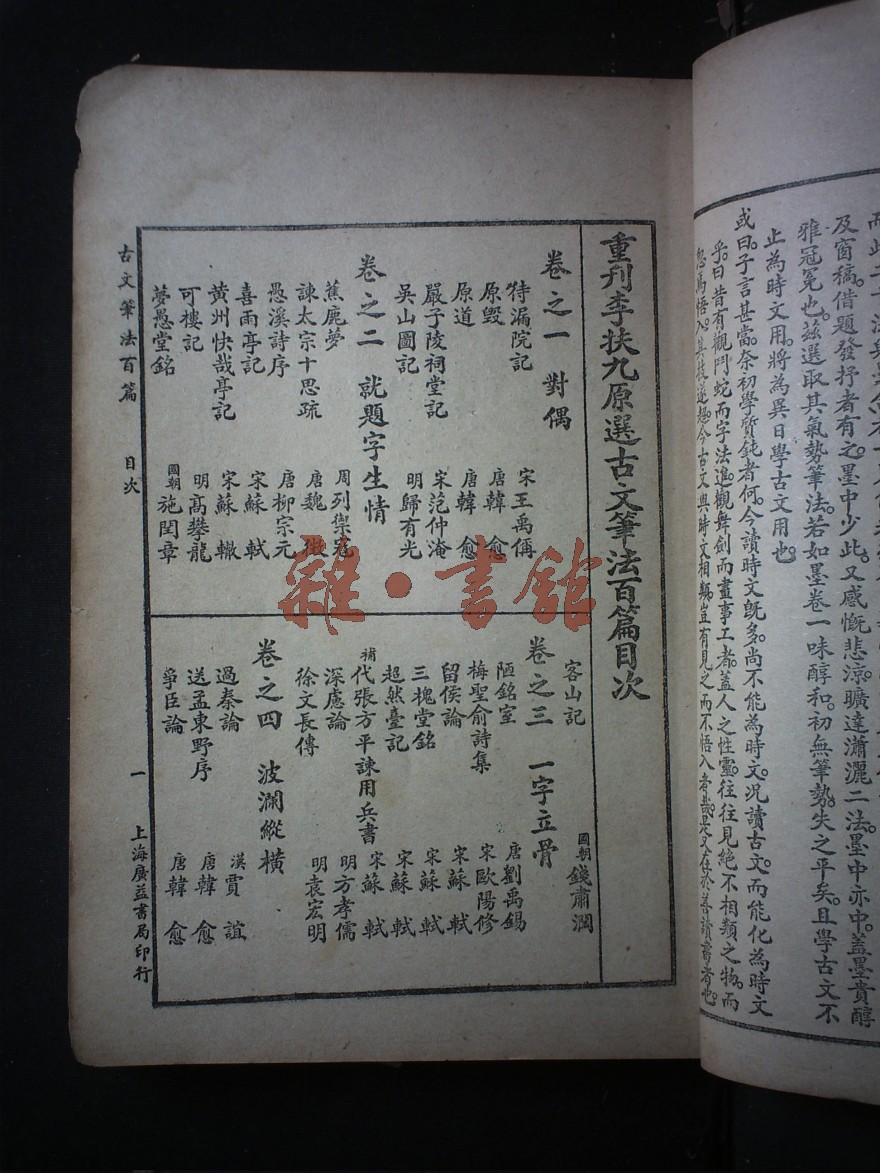 及窗稿。借題發抒者有之。墨中少此。又感慨悲涼。曠達瀟灑二法。墨中亦中。蓋墨貴醇
雅冠冕也。茲選取其氣勢筆法。若如墨卷一味醇和。初無筆勢。失之平矣。且學古文不
止為時文用。將為異日學古文用也。
或曰。子言甚當。奈初學質鈍者何。今讀時文旣多。尚不能為時文。況讀古文。而能化為時文
乎。曰昔有觀鬥蛇而字法進。觀舞劍而畫事工者。蓋人之性靈。往往見絕不相類之物。而
忽焉悟入。其技遂
今古文與時文相類。豈有見之而不悟入者哉。是又在於善讀書者也。
重刊李扶九原選古文筆法百篇目次
卷之一 對偶
待漏院記 宋王禹偁
原毀 唐韓愈
原道 唐韓愈
嚴子陵祠堂記 宋范仲淹
吳山圖記 明歸有光
卷之二 就題字生情
蕉鹿夢 周列禦寇
諫太宗十思疏 唐魏徵
愚溪詩序 唐柳宗元
喜雨亭記 宋蘇軾
黃州快哉亭記 宋蘇轍
可樓記 明高攀龍
夢愚堂銘 國朝施閏章
客山記 國朝錢肅潤
卷之三 一字立骨
陋銘室 唐劉禹錫
梅聖俞詩集 宋歐陽修
留侯論 宋蘇軾
三槐堂銘 宋蘇軾
超然臺記 宋蘇軾
補代張方平諫用兵書 宋蘇軾
深慮論 明方孝儒
徐文長傳 明袁宏明
卷之四 波瀾縱橫
過秦論 漢賈誼
送孟東野序 唐韓愈
爭臣論 唐韓愈
古文筆法百篇 目次 一 上海廣益書局印行
雜·書館